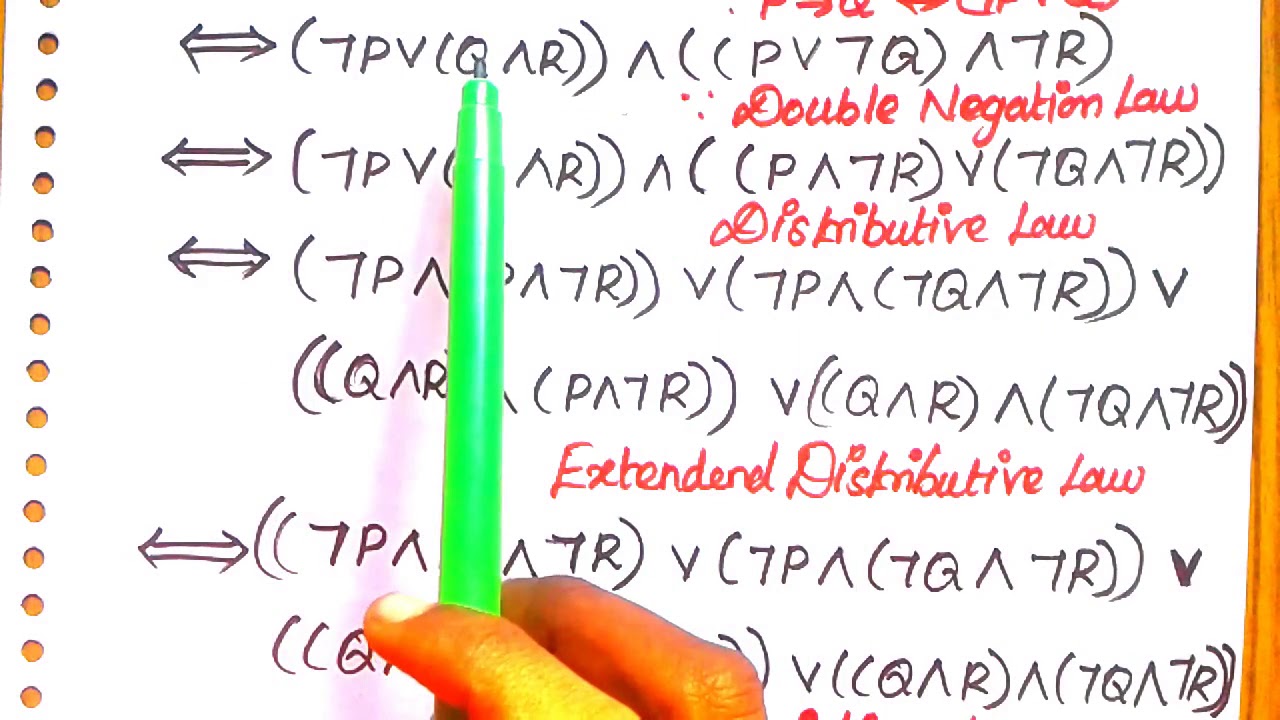 ⟺ (¬P∨(Q∧R)) ∧ ((P∨¬Q) ∧¬R)
∵ Double Negation Law
⟺ (¬P∨( ∧R)) ∧ ((P∧¬R)∨(¬Q∧¬R))
Distributive Law
⟺ (¬P∧ P∧¬R)) ∨(¬P∧(¬Q∧¬R)) ∨
((Q∧R ∧ (P∧¬R)) ∨((Q∧R) ∧(¬Q∧¬R))
Extendend Distributive Law
⟺ ((¬P∧ ∧¬R) ∨ (¬P∧(¬Q∧¬R)) ∨
((Q∧ )) ∨((Q∧R)∧(¬Q∧¬R))